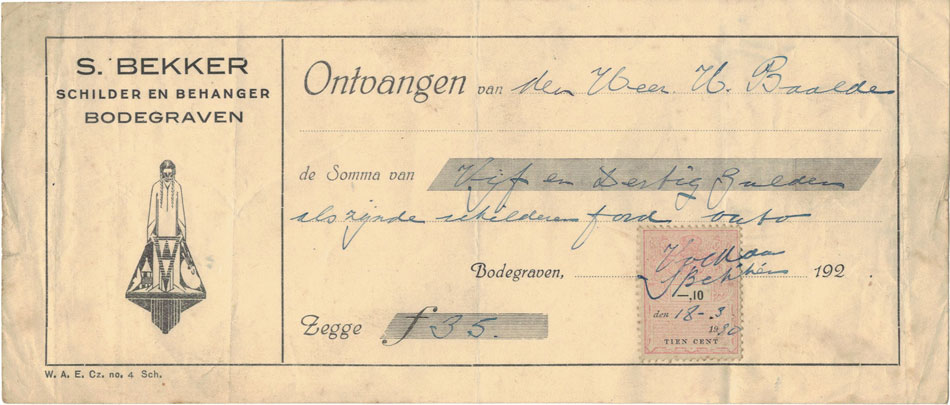 S. BEKKER
SCHILDER EN BEHANGER
BODEGRAVEN
Ontvangen van den Heer H. Baalde
de Somma van Vijf en Dertig Gulden
als zijnde schilderen ford auto
Bodegraven, 192
Voldaan
S Bekker
—,10
den 18-3.
1930
TIEN CENT
Zegge f 35.
W. A. E. Cz. no. 4 Sch.